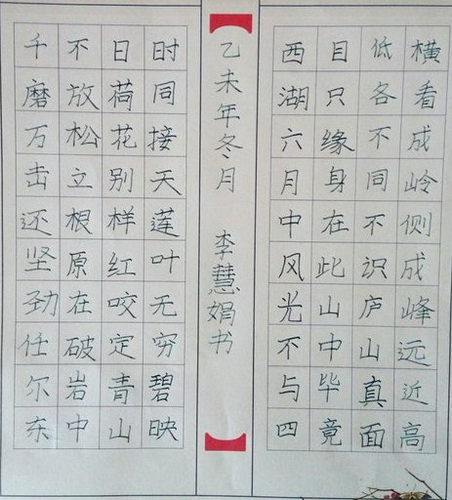 横看成岭侧成峰远近高
低各不同不识庐山真面
目只缘身在此山中毕竟
西湖六月中风光不与四
乙未年冬月 李慧娟书
时同接天莲叶无穷碧映
日荷花别样红咬定青山
不放松立根原在破岩中
千磨万击还坚劲任尔东